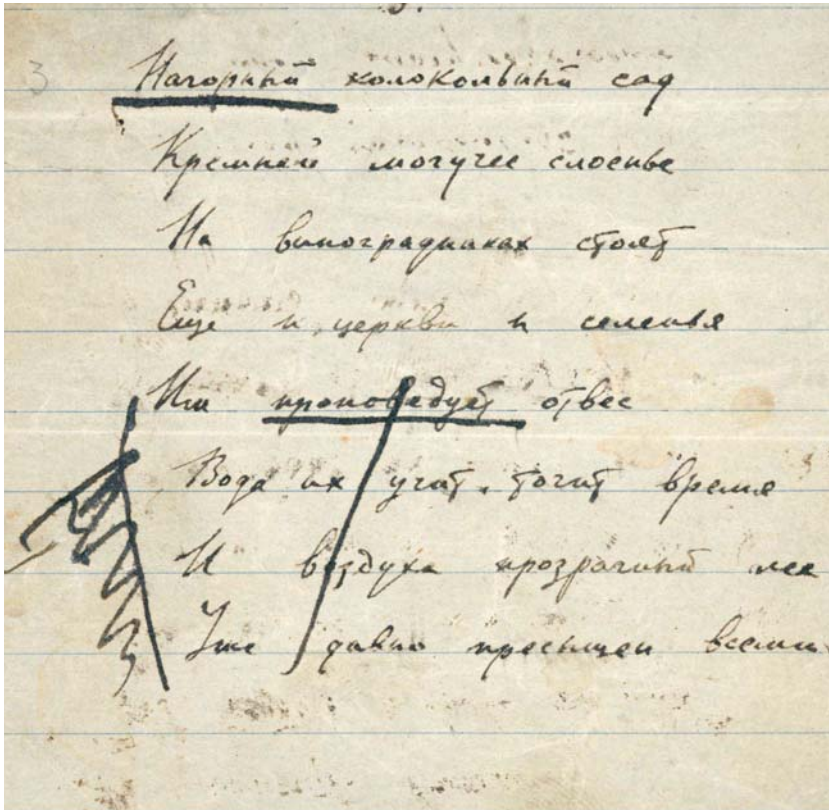 3
Нагорный колокольный сад
Кремней могучее слоенье
На виноградниках стоят
Еще и церкви и селенья
Им проповедует отвес
Вода их учит, точит время
И воздуха прозрачный лес
Уже давно пресыщен всеми